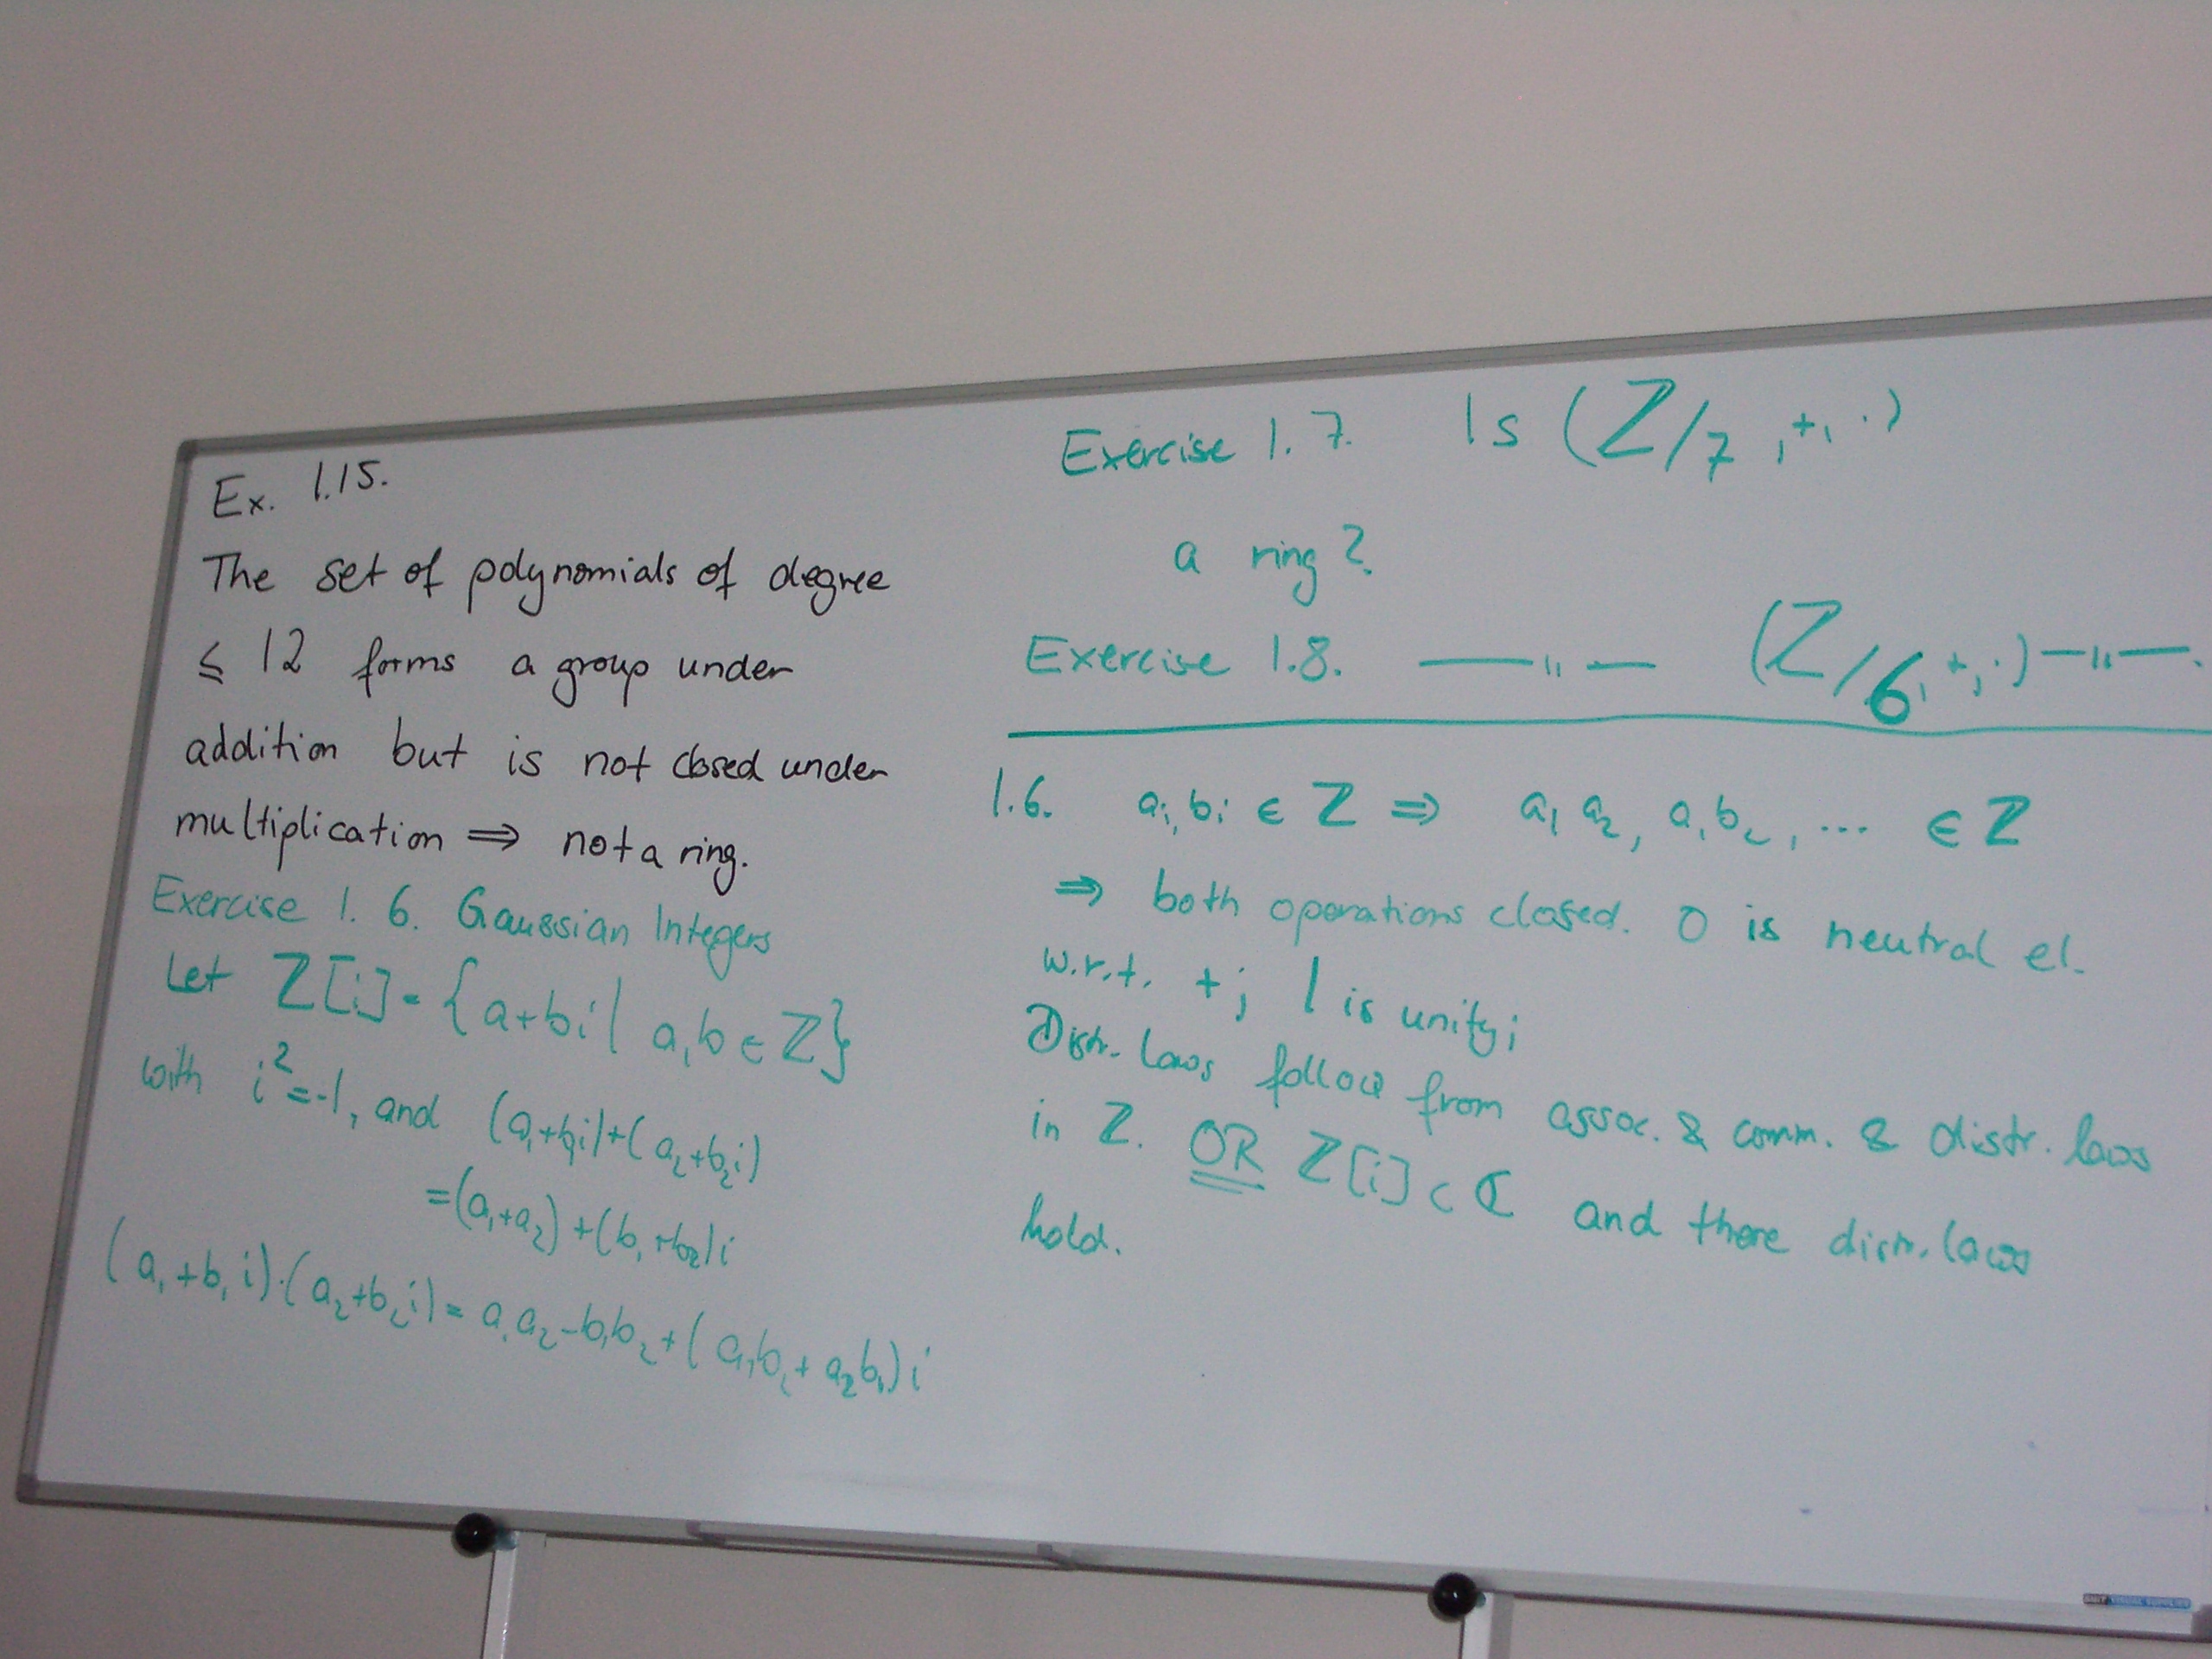 Ex. 1.15.
The set of polynomials of degree
≤ 12 forms a group under
addition but is not closed under
multiplication ⇒ not a ring.
Exercise 1.6. Gaussian Integers
Let ℤ[i] = {a+bi | a,b ∈ ℤ}
with i²=-1, and (a₁+b₁i)+(a₂+b₂i)
=(a₁+a₂)+(b₁+b₂)i
(a₁+b₁i)·(a₂+b₂i)= a₁a₂-b₁b₂+(a₁b₂+a₂b₁)i
Exercise 1.7. Is (ℤ/7,+,·)
a ring?
Exercise 1.8. —"— (ℤ/6,+,·)—"—.
1.6. aᵢ,bᵢ ∈ ℤ ⇒ a₁a₂, a₁b₂, ... ∈ ℤ
⇒ both operations closed. 0 is neutral el.
w.r.t. +; 1 is unity;
Distr. laws follow from assoc. & comm. & distr. laws
in ℤ. OR ℤ[i] ⊂ ℂ and there distr. laws
hold.